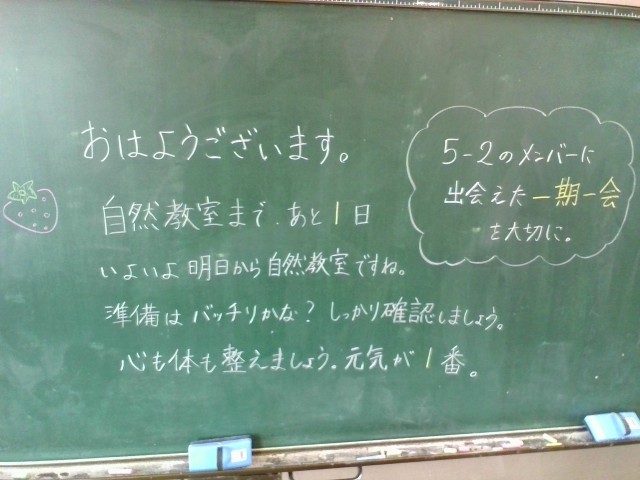 おはようございます。
自然教室まで、あと1日
いよいよ明日から自然教室ですね。
準備は バッチリかな？しっかり確認しましょう。
心も体も整えましょう。元気が1番。
5-2のメンバーに
出会えた一期一会
を大切に。